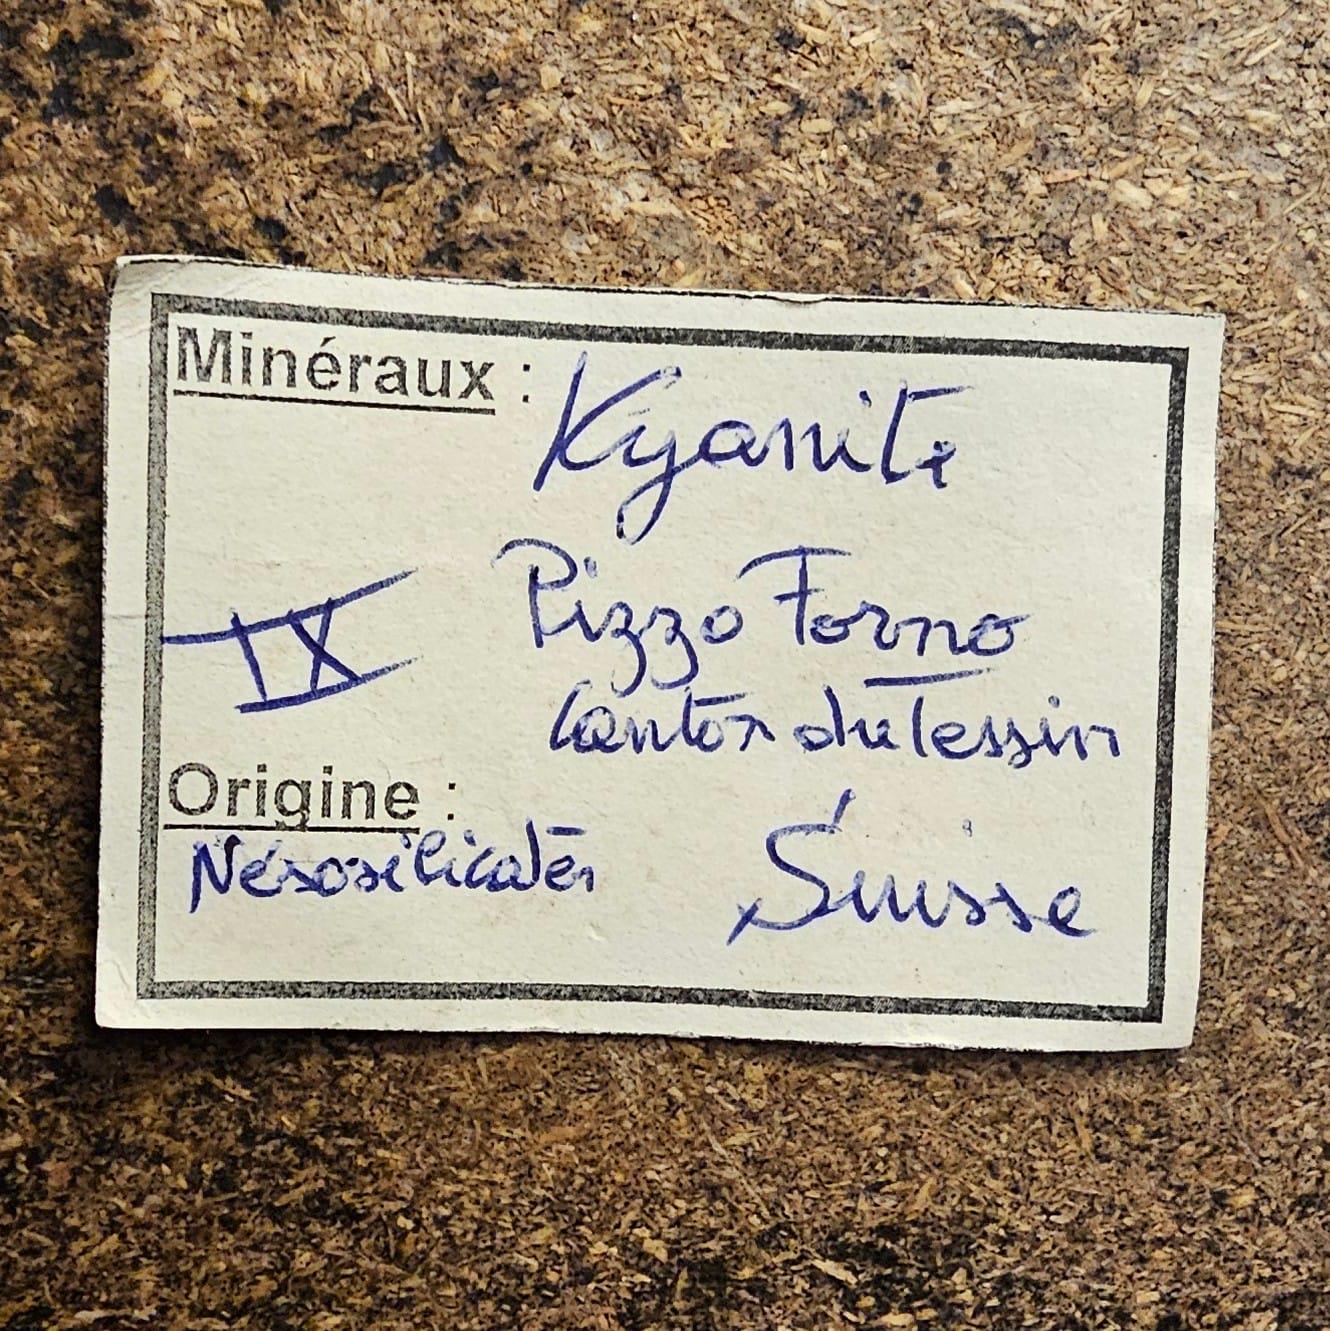 Minéraux : Kyanite
Pizzo Forno
IX
Canton du Tessin
Origine :
Nésosilicates
Suisse